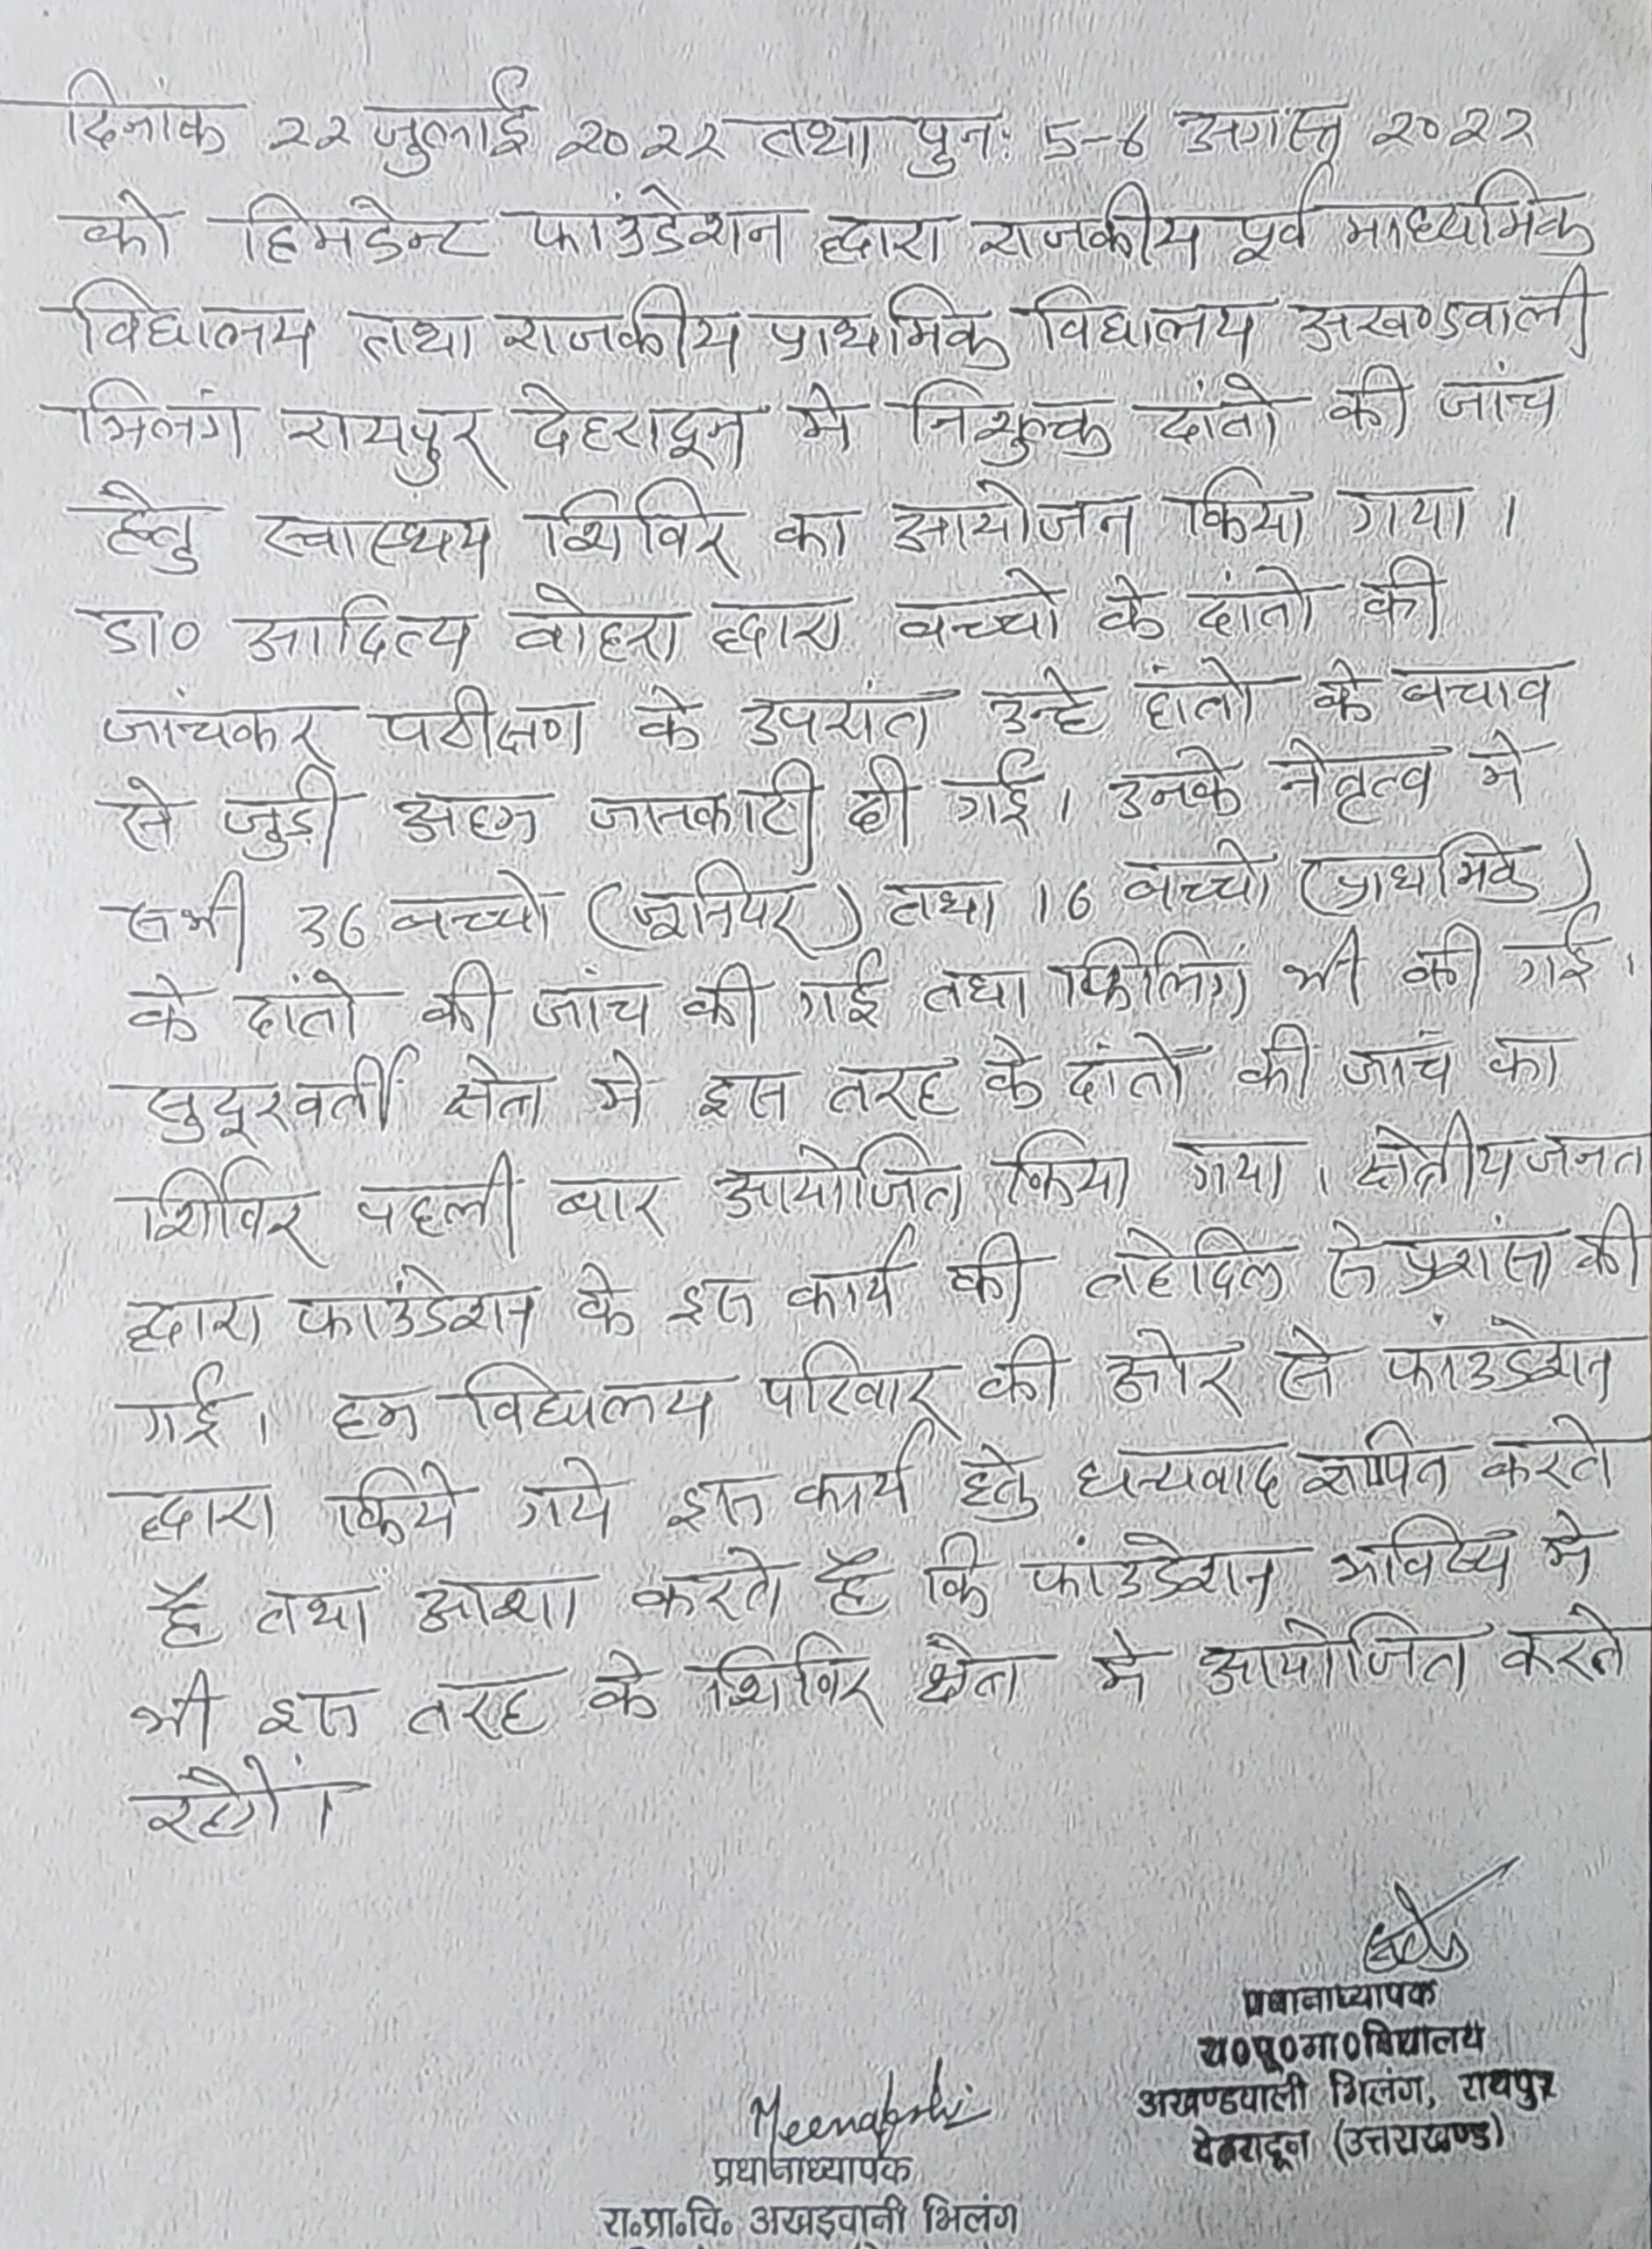 दिनांक २२ जुलाई २०२२ तथा पुनः 5-6 अगस्त २०२२
को हिमडेन्ट फाउंडेशन द्वारा राजकीय पूर्व माध्यमिक
विद्यालय तथा राजकीय प्राथमिक विद्यालय अखण्डवाली
भिलंग रायपुर देहरादून मे निशुल्क दांतो की जांच
हेतु स्वास्थ्य शिविर का आयोजन किया गया।
डा० आदित्य वोहरा द्वारा बच्चो के दांतो की
जांचकर परीक्षण के उपरांत उन्हे दांतो के बचाव
से जुड़ी अहम जानकारी दी गई। उनके नेतृत्व मे
सभी 36 बच्चो (जूनियर) तथा 16 बच्चो (प्राथमिक)
के दांतो की जांच की गई तथा फिलिंग भी की गई।
सुदूरवर्ती क्षेत्र मे इस तरह के दांतो की जांच का
शिविर पहली बार आयोजित किया गया। क्षेत्रीय जनत
द्वारा फाउंडेशन के इस कार्य की तहेदिल से प्रशंसा की
गई। हम विद्यालय परिवार की ओर से फांउडेशन
द्वारा किये गये इस कार्य हेतु धन्यवाद ज्ञापित करते
है तथा आशा करते है कि फांउडेशन भविष्य मे
भी इस तरह के शिविर क्षेत्र मे आयोजित करते
रहेगें।
प्रधानाध्यापक
रा०पू०मा०विद्यालय
अखण्डवाली भिलंग, रायपुर
देहरादून (उत्तराखण्ड)
Meenakshi
प्रधानाध्यापक
रा०प्रा०वि० अखडवानी भिलंग